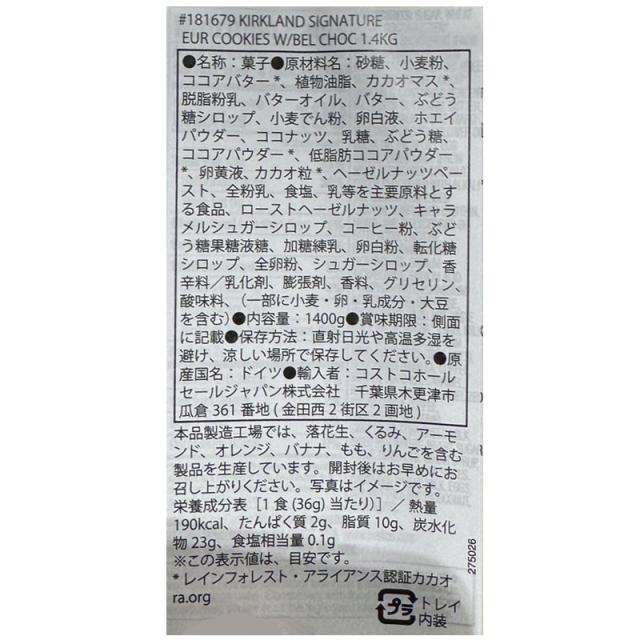 #181679 KIRKLAND SIGNATURE
EUR COOKIES W/BEL CHOC 1.4KG
●名称：菓子●原材料名：砂糖、小麦粉、
ココアバター*、植物油脂、カカオマス*、
脱脂粉乳、バターオイル、バター、ぶどう
糖シロップ、小麦でん粉、卵白液、ホエイ
パウダー、ココナッツ、乳糖、ぶどう糖、
ココアパウダー*、低脂肪ココアパウダー
*、卵黄液、カカオ粒*、ヘーゼルナッツペー
スト、全粉乳、食塩、乳等を主要原料とす
る食品、ローストヘーゼルナッツ、キャラ
メルシュガーシロップ、コーヒー粉、ぶど
う糖果糖液糖、加糖練乳、卵白粉、転化糖
シロップ、全卵粉、シュガーシロップ、香
辛料／乳化剤、膨張剤、香料、グリセリン、
酸味料、（一部に小麦・卵・乳成分・大豆
を含む）●内容量：1400g●賞味期限：側面
に記載●保存方法：直射日光や高温多湿を
避け、涼しい場所で保存してください。●原
産国名：ドイツ●輸入者：コストコホール
セールジャパン株式会社　千葉県木更津市
瓜倉 361 番地 ( 金田西 2 街区 2 画地 )
本品製造工場では、落花生、くるみ、アーモ
ンド、オレンジ、バナナ、もも、りんごを含む
製品を生産しています。開封後はお早めにお
召し上がりください。写真はイメージです。
栄養成分表［1 食 (36g) 当たり)］／熱量
190kcal、たんぱく質 2g、脂質 10g、炭水化
物 23g、食塩相当量 0.1g
※この表示値は、目安です。
* レインフォレスト・アライアンス認証カカオ
ra.org
275026
プラ
トレイ
内装